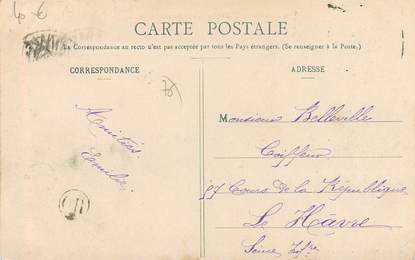 40 €
CARTE POSTALE
La Correspondance au recto n'est pas acceptée par tous les Pays étrangers. (Se renseigner à la Poste.)
CORRESPONDANCE
ADRESSE
76
Amitiés
Emile
Monsieur Belleville
Coiffeur
97 Cours de la République
Le Hâvre
Seine Infre